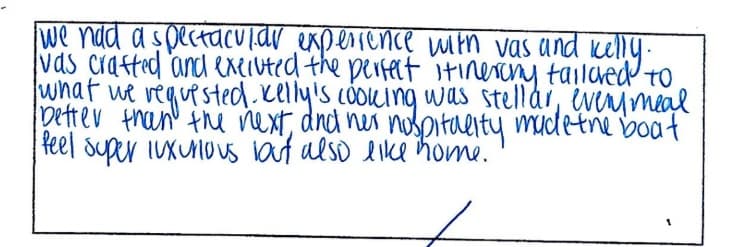 we had a spectacular experience with vas and kelly.
vas crafted and executed the perfect itinerary tailored to
what we requested. kelly's cooking was stellar, every meal
better than the next, and her hospitality made the boat
feel super luxurious but also like home.